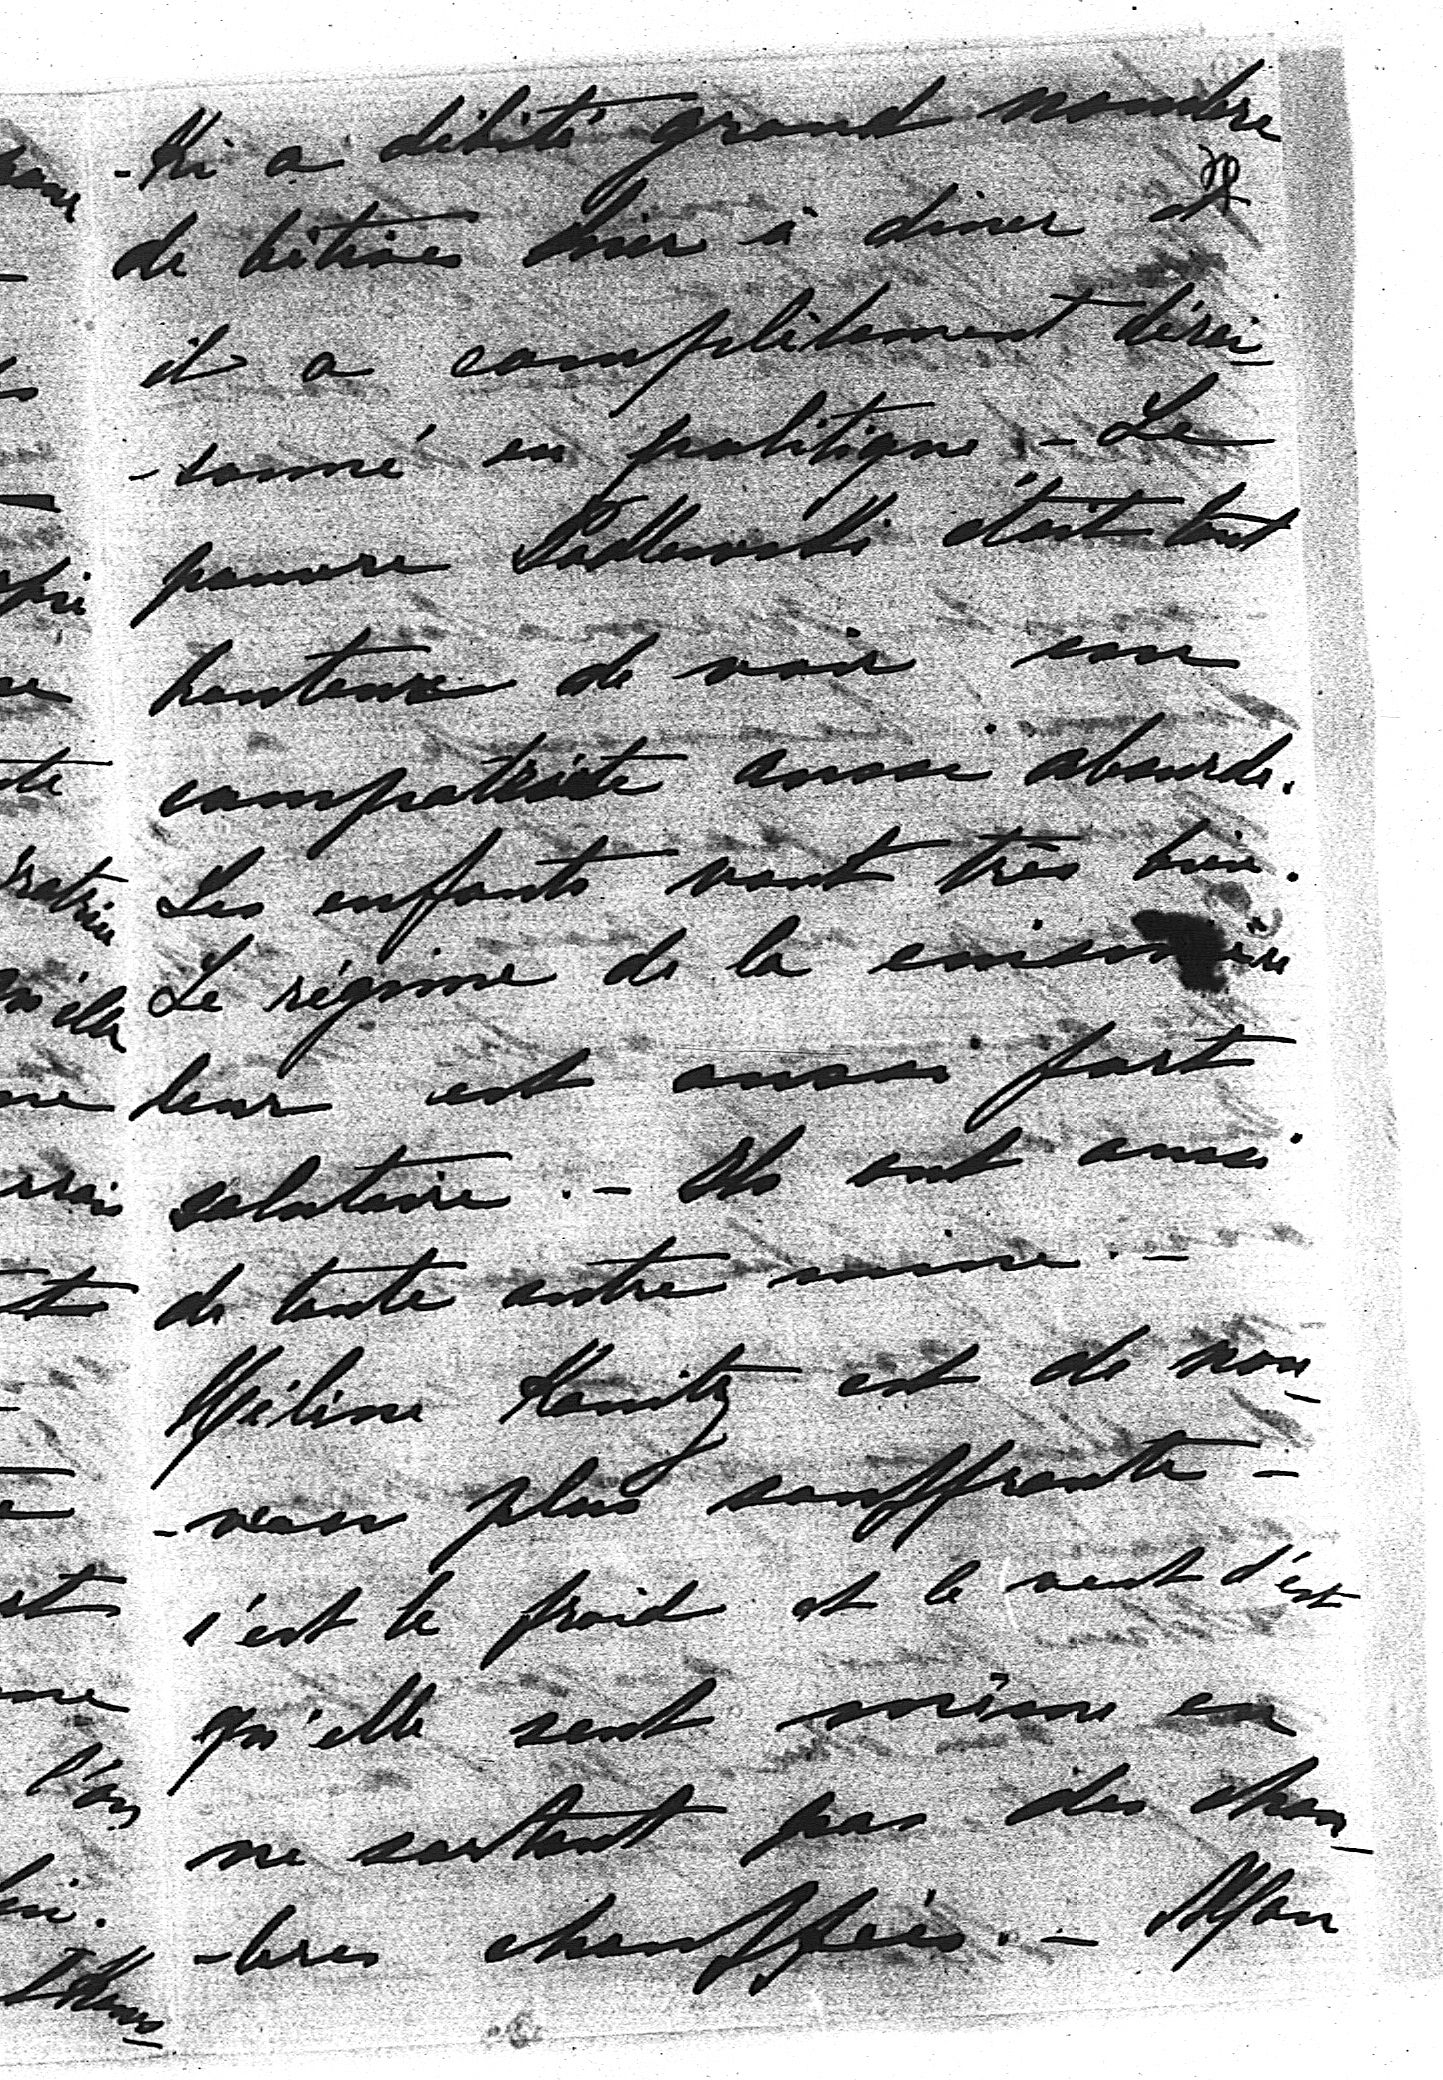 -ki a débité grand nombre
de bêtises hier à diner et
il a complètement dérai
-sonné en politique - Le
pauvre était tout
honteux de voir son
compatriote aussi absurde.
Les enfants vont très bien.
Le régime de la cuisinière
leur est aussi fort
salutaire. - Ils ont aussi
de toute autre mine. -
Hélène Kanitz est de nou_
-veau plus souffrante -
c'est le froid et le vent d'est
qu'elle sent même en
ne sortant pas des cham_
-bres chauffées. - Mon